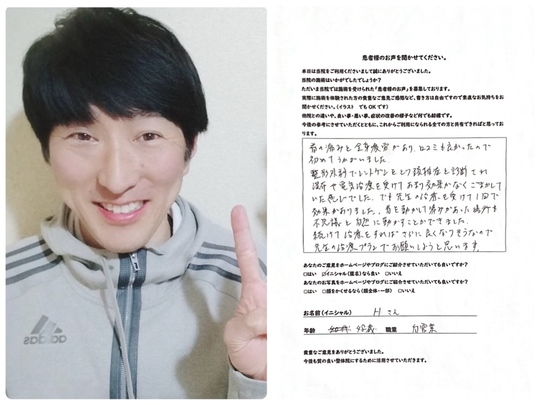 adidas
患者様のお声を聞かせてください。
本日は当院をご利用くださいまして誠にありがとうございました。
当院の施術はいかがでしたでしょうか？
ただいま当院では施術を受けられた「患者様のお声」を募集しております。
実際に施術を体験された方の貴重なご意見ご感想など、書き方は自由ですので素直なお気持ちをお
聞かせください。(イラスト でもOKです)
他院との違いや、良い事・悪い事、症状の改善の様子など何でも結構です。
今後の参考にさせていただくとともに、これからご利用になられる全ての方と共有できればと思ってお
ります。
首の痛みと全身疲労があり、口コミも良かったので
初めてうかがいました。
整形外科でレントゲンをとり頚椎症と診断され
湿布や電気治療を受けてあまり効果がなくごまかして
いた感じでした。でも先生の治療を受けて1回で
効果がありました。首を動かして痛みがあった場所も
不思議と自然に動かすことができました。
続けて治療をすればさらに良くなりそうなので
先生の治療プランでお願いしようと思います。
あなたのご意見をホームページやブログにご紹介させていただいても良いですか？
□はい ☑イニシャル(匿名)なら良い □いいえ
あなたのお写真をホームページやブログにご紹介させていただいても良いですか？
□はい □顔をかくせるなら(顔全体・一部) □いいえ
お名前(イニシャル) H さん
年齢 職業 自営業
貴重なご意見をありがとうございました。
今後も質の良い整体院にするために活用させていただきます。